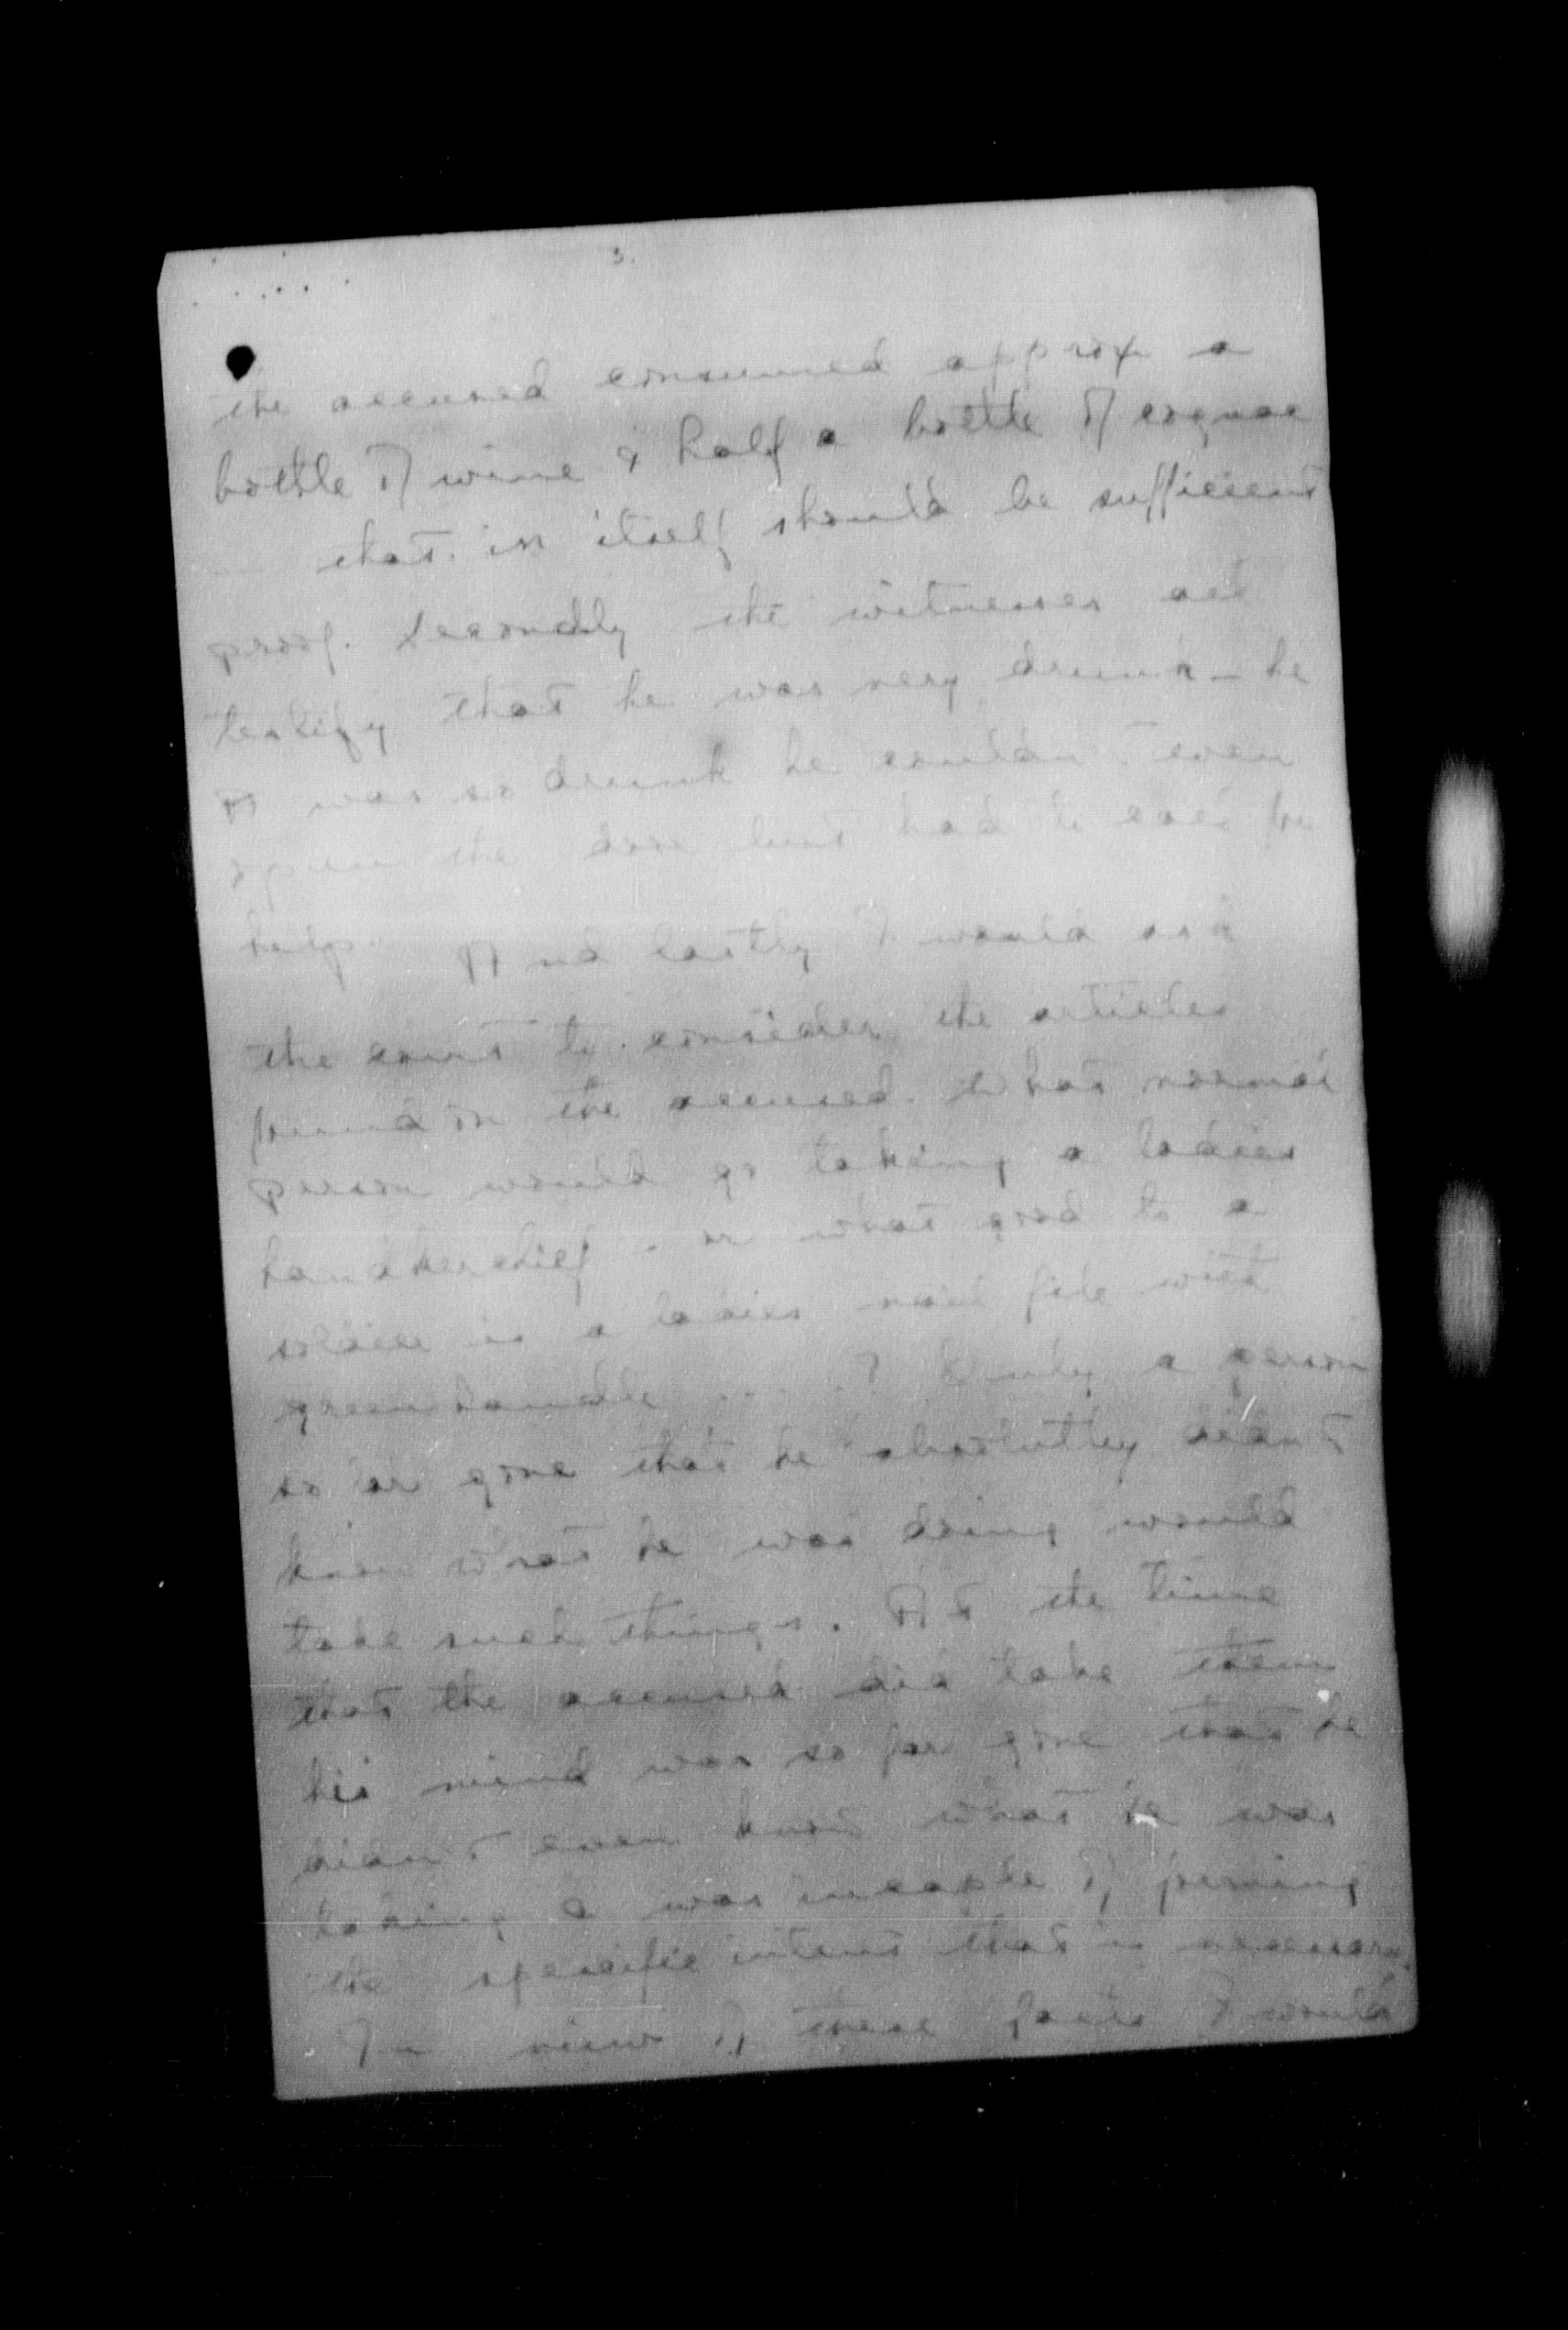 3.
the accused consumed approx a
bottle of wine & half a bottle of cognac
that in itself should be sufficient
proof. Secondly the witnesses all
testify that he was very drunk - he
was so drunk he couldn't even
open the door but had to call for
help. And lastly I would ask
the court to consider the articles
found on the accused. What normal
person would go taking a ladies
handkerchief - or what good to a
soldier is a ladies nail file with
green handle ....? Surely a person
so far gone that he absolutely didn't
know what he was doing would
take such things. At the time
that the accused did take them
his mind was so far gone that he
didn't even know what he was
taking & was incapable of forming
the specific intent that is necessary.
In view of these facts I would